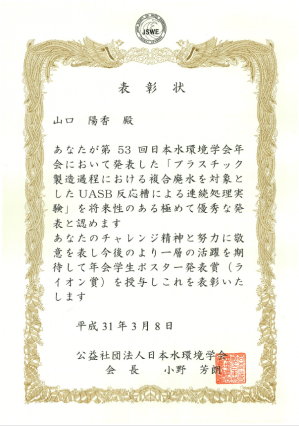 JSWE
表彰状
山口 陽香 殿
あなたが第 53 回日本水環境学会年
会において発表した「プラスチック
製造過程における複合廃水を対象と
した UASB 反応槽による連続処理実
験」を将来性のある極めて優秀な発
表と認めます
あなたのチャレンジ精神と努力に敬
意を表し今後のより一層の活躍を期
待して年会学生ポスター発表賞（ラ
イオン賞）を授与しこれを表彰いた
します
平成31年3月8日
公益社団法人日本水環境学会
会 長 小野 芳朗